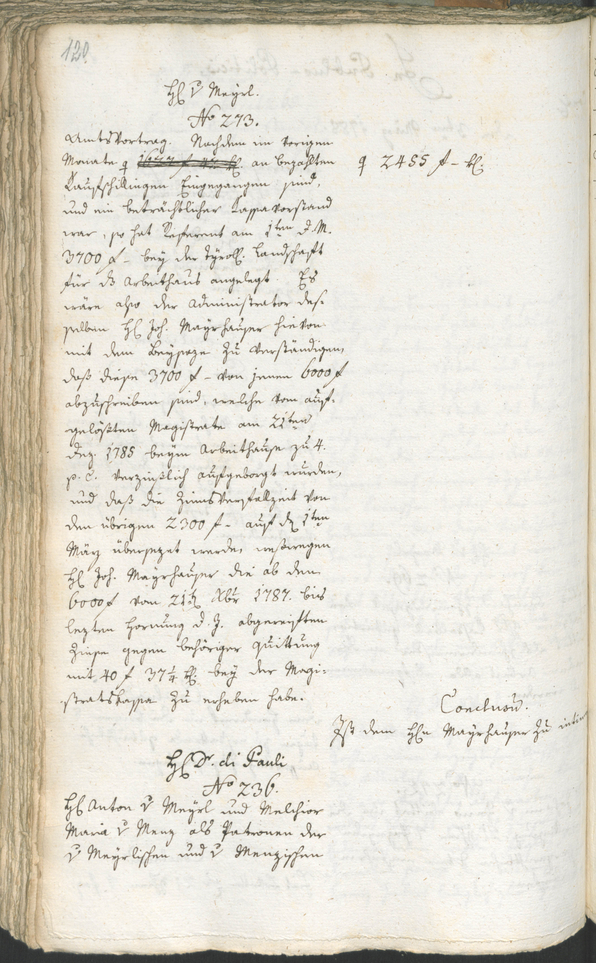 120.
H v Meyrl.
No 273.
Amtsvortrag. Nachdem im vorigen
Monate q an bezahlten
q 2455 f – x
Kaufschillingen Eingegangen sind,
und ein beträchtlicher Kassavorstand
war, so hat Referent am 1ten d. M.
3700 f – bey der tyroll. Landschaft
für ds Arbeithaus angelegt Es
wäre also der Administrator des-
selben H Joh. Mayrhauser hievon
mit dem Beysaze zu verständigen,
daß diese 3700 f – von jenen 6000 f
abzuschreiben sind, welche vom auf-
gelößten Magistrate am 21ten
Dez. 1785 beym Arbeithause zu 4.
p. C. verzinslich aufgeborgt wurden,
und daß die Zinsverfallzeit von
den übrigen 2300 f – auf den 1ten
März übersezt werde, weßwegen
H Joh. Mayrhauser die ab den
6000 f vom 21t Xbr 1787. bis
lezten Hornung d. J. abgereiften
Zinse gegen behöriger Quittung
mit 40 f 37¼ x bey der Magi-
stratskassa zu erheben habe.
Conclusū.
Ist dem Hn Mayrhauser zu intim
H Dr. di Pauli
No 236.
H Anton v Meyrl und Melchior
Maria v Menz als Patronen der
v Meyrlischen und v Menzischen